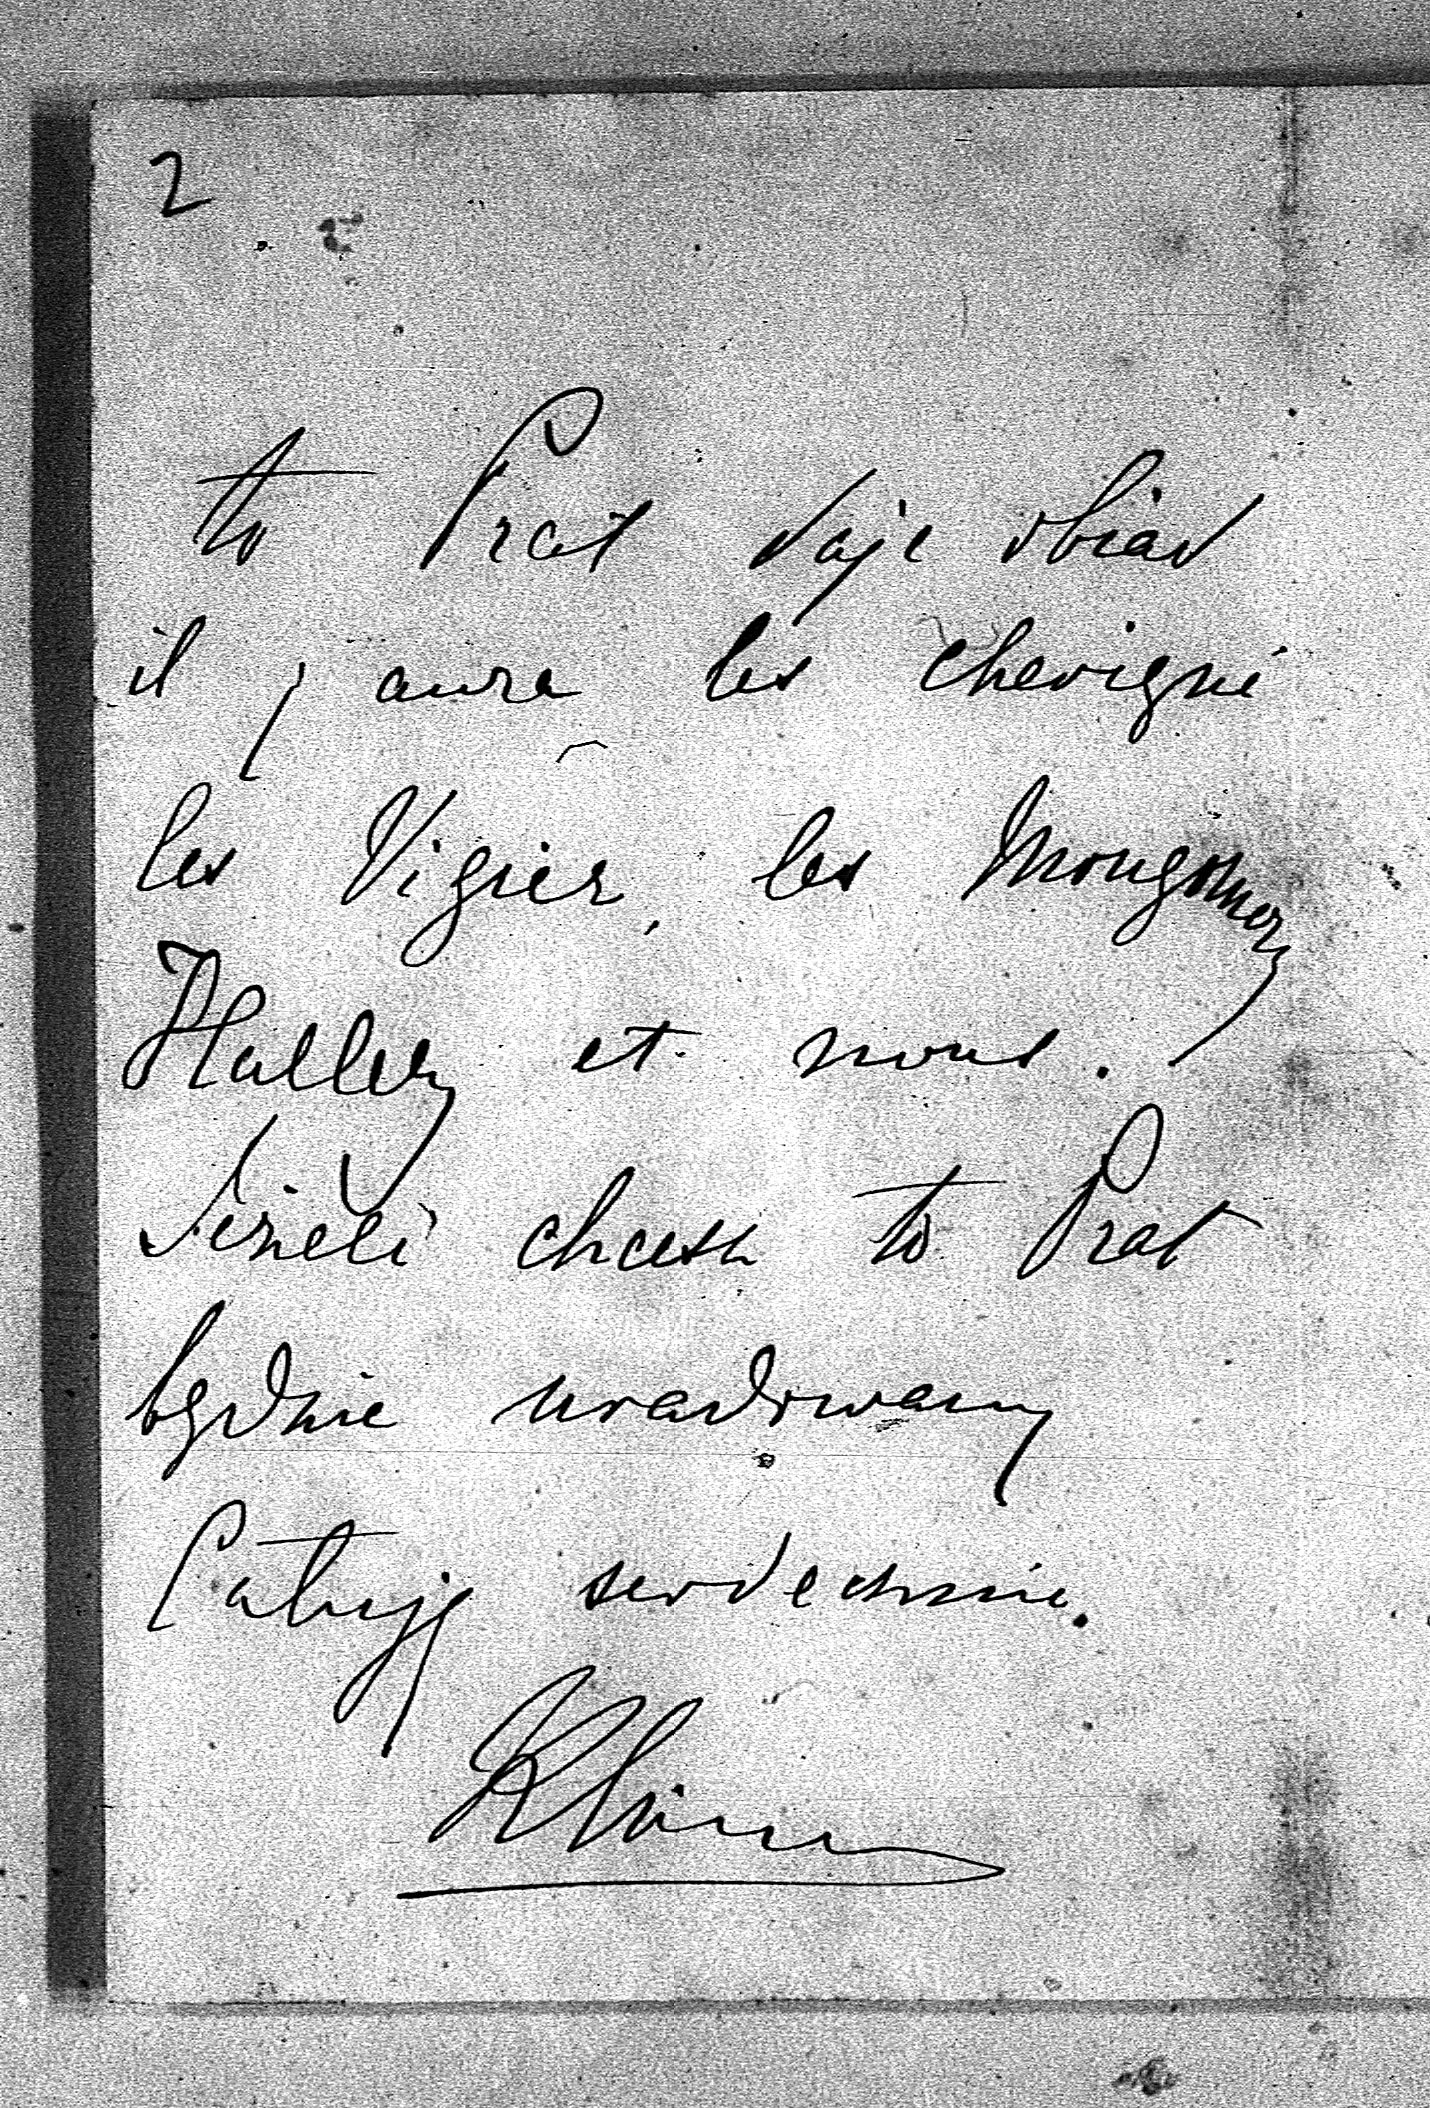 2
to Prat daje obiad
il y aura les Chevigné
les Vigier, les Mongomery
Halley et nous.
Jeżeli chcesz to Prat
będzie uradowany
Całuję serdecznie.